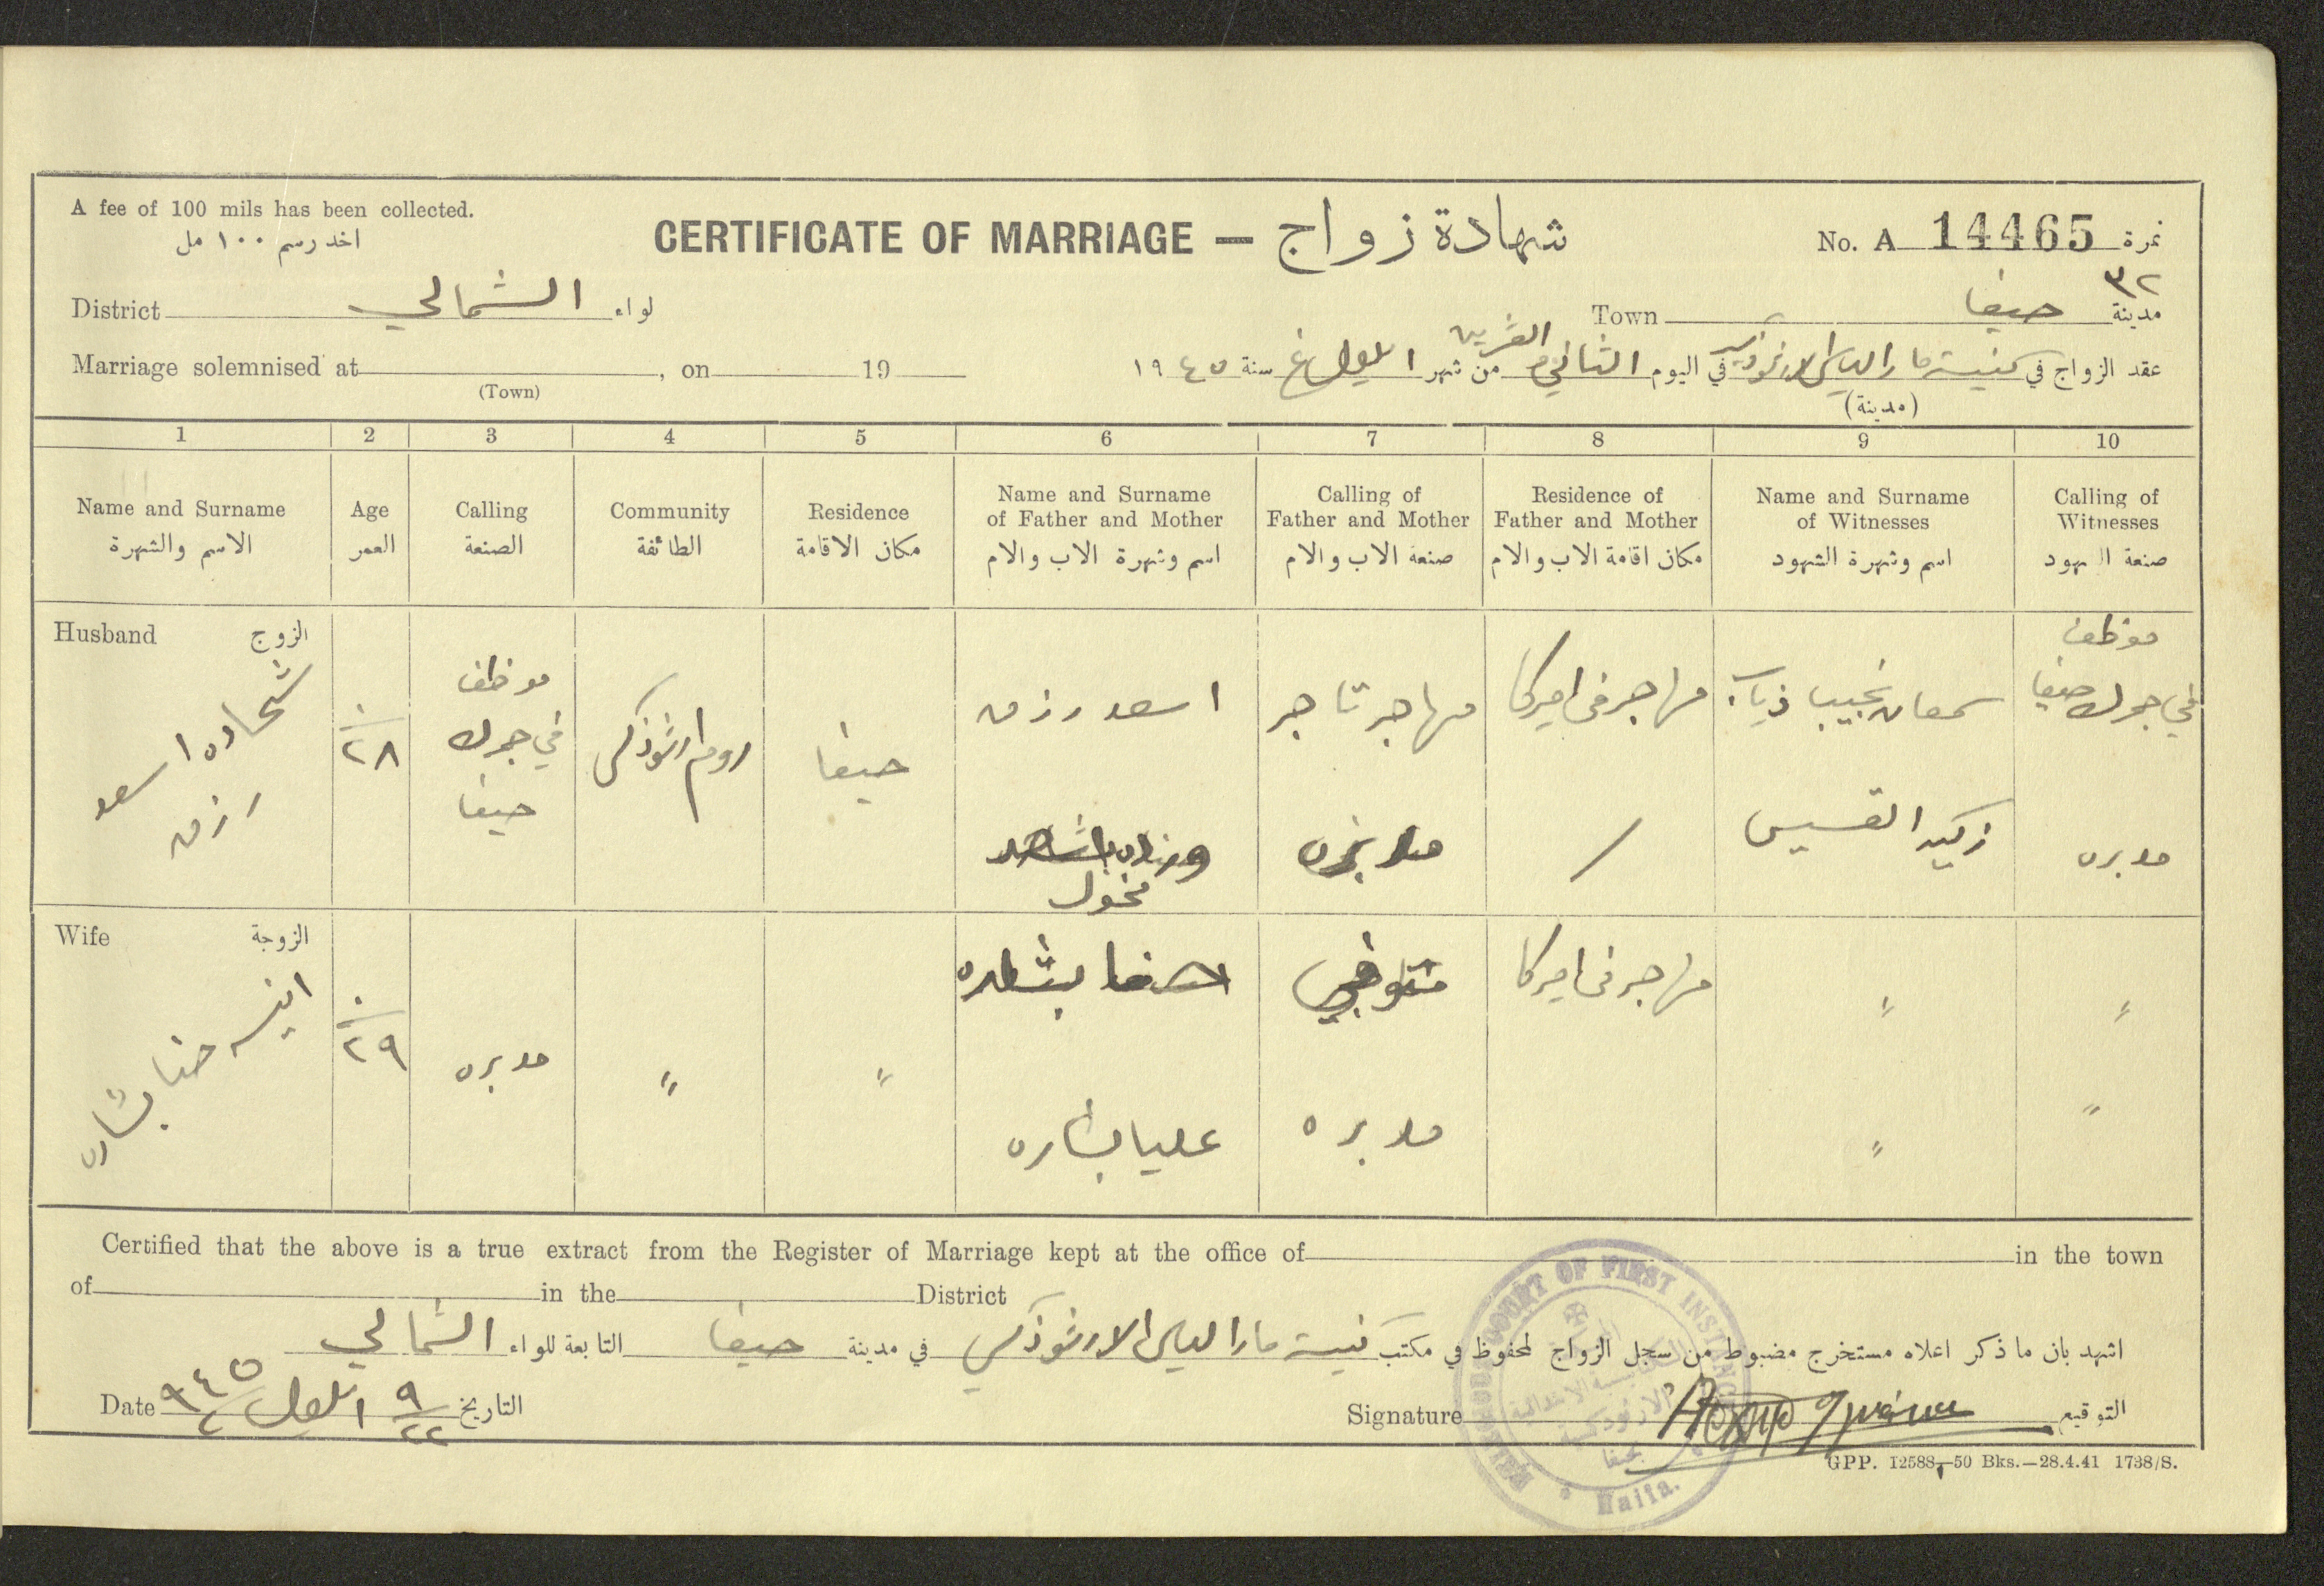 A fee of 100 mils has been collected.
اخذ رسم ١٠٠ مل
CERTIFICATE OF MARRIAGE — شهادة زواج
No. A 14465 نمرة
٣٢
District الشمالي لواء
Town حيفا مدينة
Marriage solemnised at , on 19
(Town)
عقد الزواج في كنيسة مار الياس الارثوذكسية في اليوم الثاني من شهر ايلول غ سنة ١٩٤٥
(مدينة)
1 2 3 4 5 6 7 8 9 10
Name and Surname
الاسم والشهرة
Age
العمر
Calling
الصنعة
Community
الطائفة
Residence
مكان الاقامة
Name and Surname
of Father and Mother
اسم وشهرة الاب والام
Calling of
Father and Mother
صنعة الاب والام
Residence of
Father and Mother
مكان اقامة الاب والام
Name and Surname
of Witnesses
اسم وشهرة الشهود
Calling of
Witnesses
صنعة الشهود
Husband الزوج
شحاده اسعد
رزق
٢٨
موظف
في جمرك
حيفا
روم ارثوذكس
حيفا
اسعد رزق
مخول
مهاجر تاجر
مدبره
مهاجر في اميركا
/
سمعان نجيب ذياب
زكيه القسيس
موظف
في جمرك حيفا
مدبره
Wife الزوجة
انيسه حنا بشاره
٢٩
مدبره
"
"
حنا بشاره
عليا بشاره
متوفي
مدبره
مهاجر في اميركا
"
"
"
"
Certified that the above is a true extract from the Register of Marriage kept at the office of in the town
of in the District
اشهد بان ما ذكر اعلاه مستخرج مضبوط من سجل الزواج المحفوظ في مكتب كنيسة مار الياس الارثوذكسي في مدينة حيفا التابعة للواء الشمالي
Date ٩/٢٢ ايلول ٩٤٥ التاريخ
Signature التوقيع
COURT OF FIRST INSTANCE
Haifa.
GPP. 12588—50 Bks.—28.4.41 1738/S.